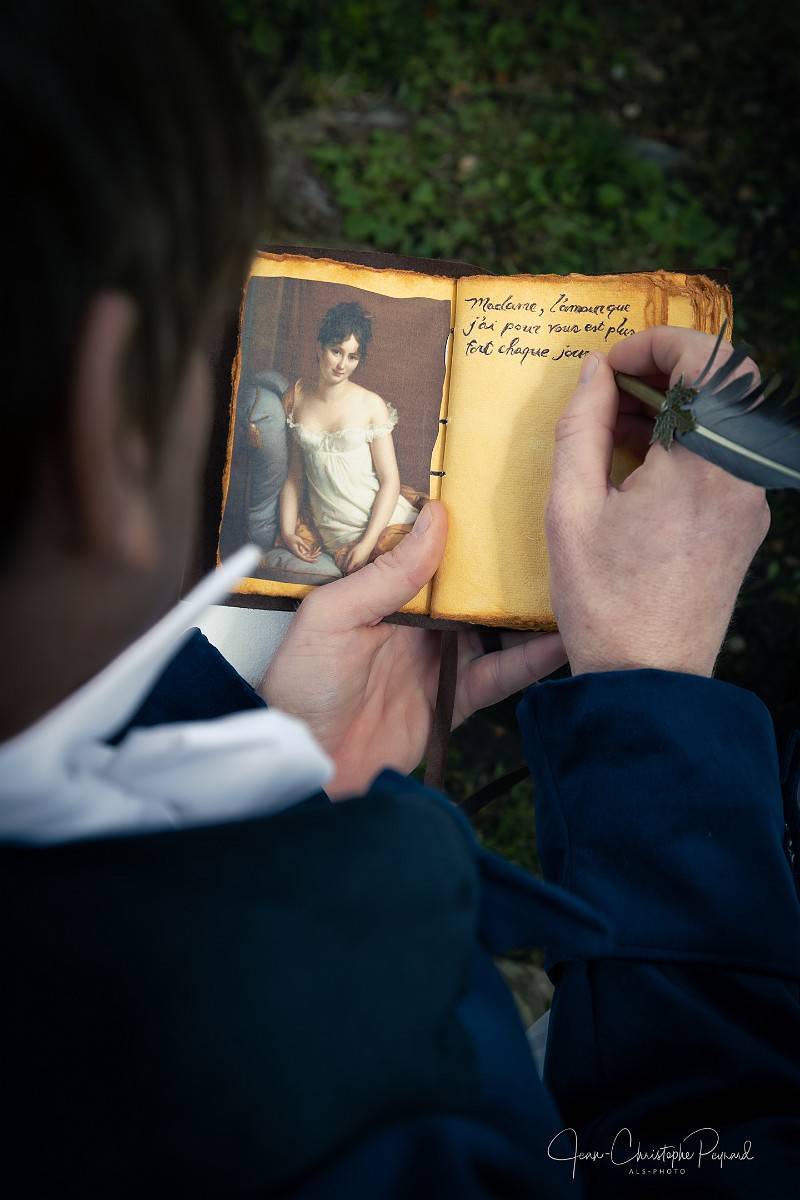 Madame, l'amour que
j'ai pour vous est plus
fort chaque jour
Jean-Christophe Peynard
ALS-PHOTO